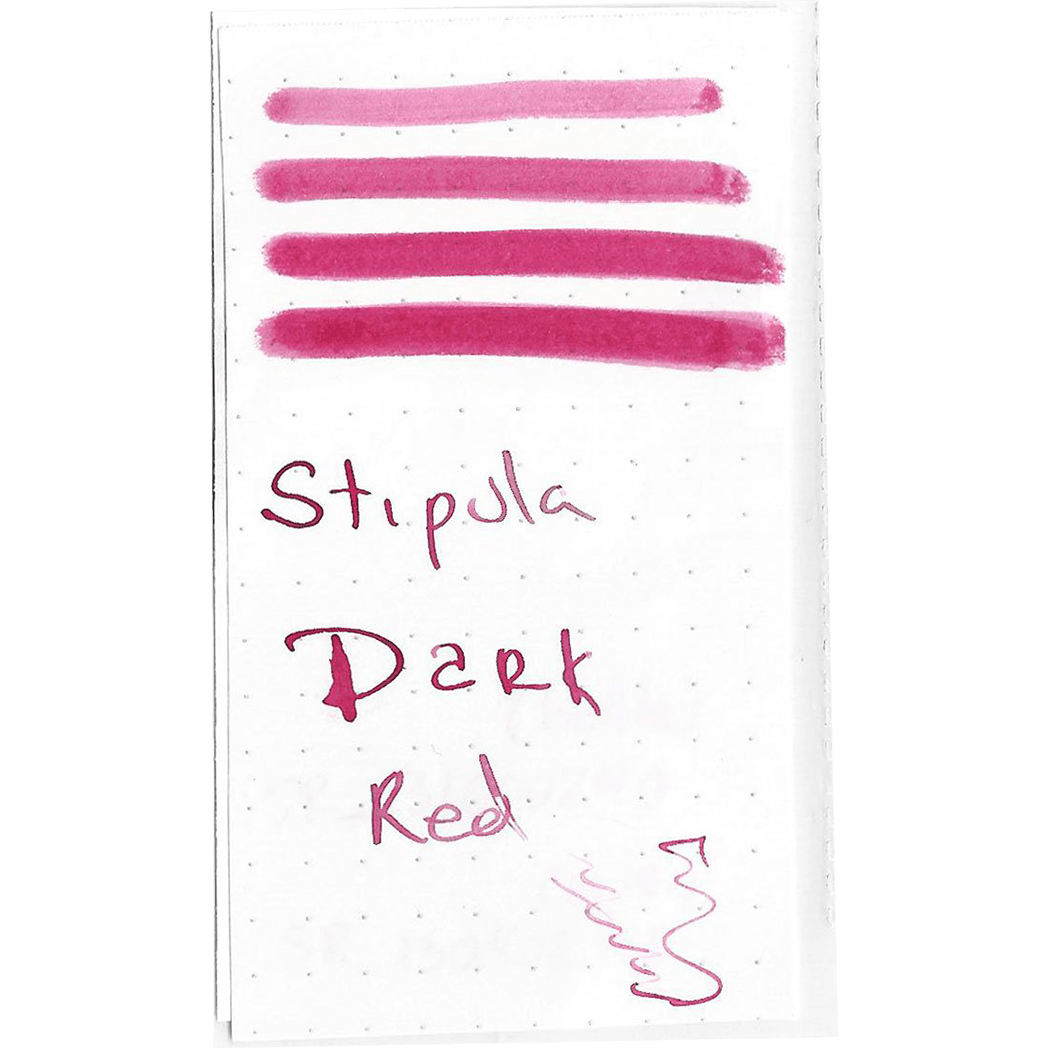 Stipula
Dark
Red